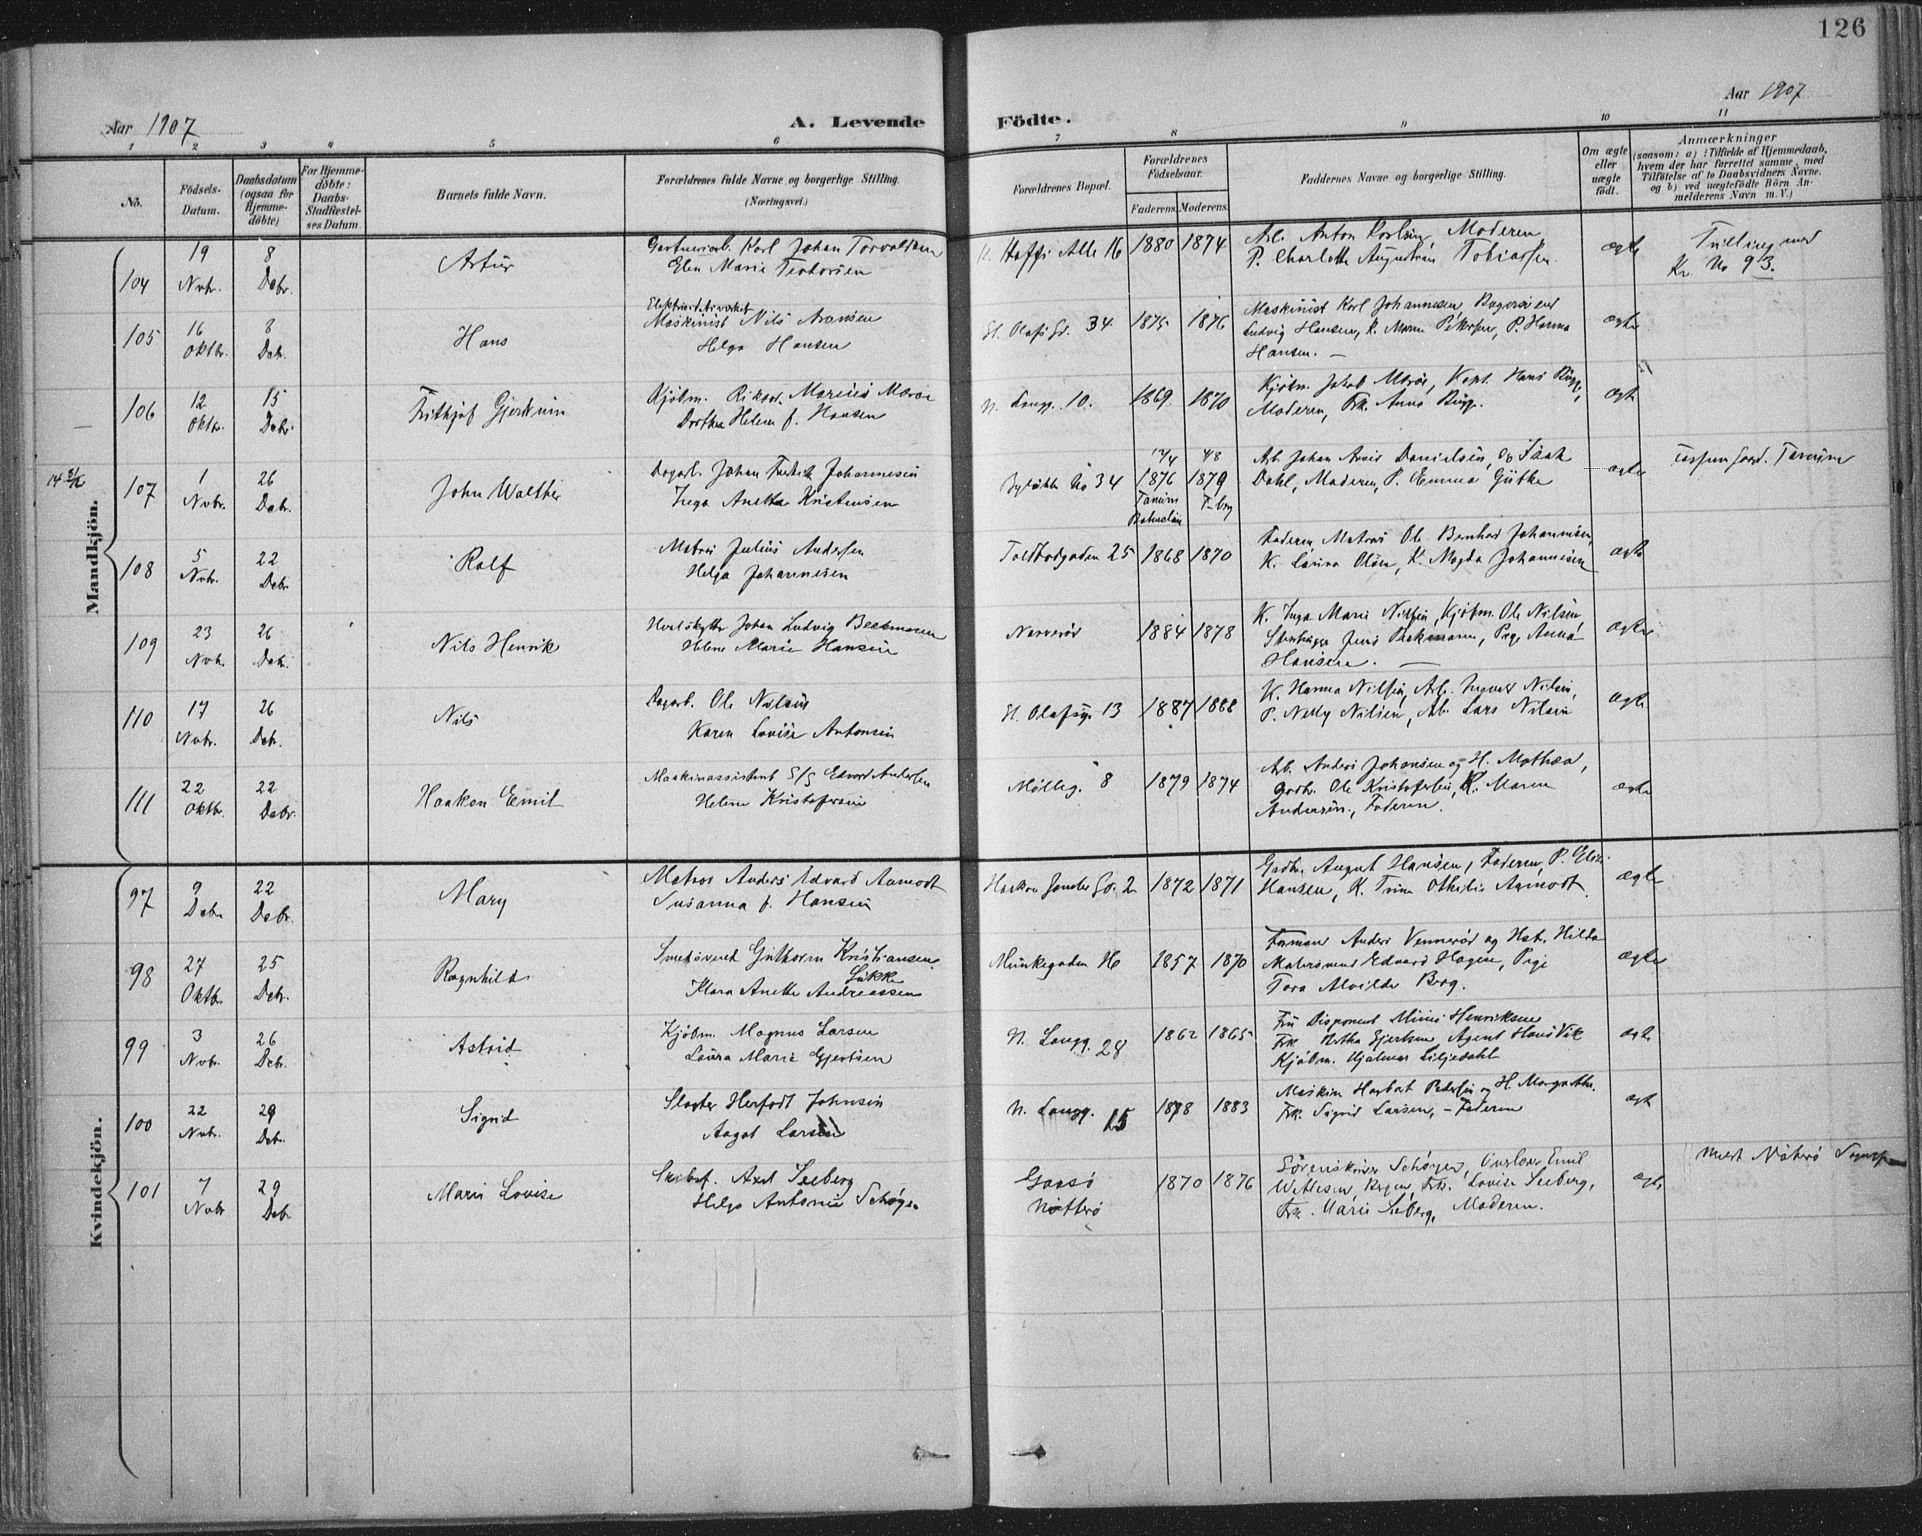 126
Aar 1907
A. Levende Födte.
Aar 1907
1 2 3 4 5 6 7 8 9 10 11
No.
Födsels-Datum.
Daabsdatum (ogsaa for Hjemmedöbte)
For Hjemmedöbte: Daabs-Stadfæstelses Datum.
Barnets fulde Navn.
Forældrenes fulde Navne og borgerlige Stilling. (Næringsvei.)
Forældrenes Bopæl.
Forældrenes Födselsaar.
Faderens. Moderens.
Faddernes Navne og borgerlige Stilling.
Om ægte eller uægte födt.
Anmærkninger
(saasom: a) i Tilfælde af Hjemmedaab, hvem der har forrettet samme, med Tilföielse af to Daabsvidners Navne, og b) ved uægtefödte Börn Anmelderens Navn m. V.)
Mandkjön.
104 19 Novbr. 8 Debr. Artur
Karl Johan Torvaldsen
Elen Marie Teodorsen
Alle 16 1880 1874
Arb. Anton Karlsen, Moderen
P. Charlotte Augustine Tobiassen.
ægte
Tvilling med
Kv. No 93.
105 16 Oktbr. 8 Debr. Hans
Elektricitetsverket
Maskinist Nils Aronsen
Helga Hansen
St. Olafs Gd. 34 1875 1876
Maskinist Karl Johannesen
Ludvig Hansen, K. Maren Petersen, P. Hanna
Hansen. —
ægte
106 12 Oktbr. 15 Debr. Frithjof
Kjöbm. Rikard Marius
Dorthea Helene f. Hansen
N. Langg. 10. 1869 1870
Kjöbm. Jakob
Moderen, Frk. Anna
ægte
107 1 Novbr. 26 Debr. John Walther
Dagarb. Johan Fredrik Johannesen
Inga Anetta Kristensen
No 34 1876 1879
Tanum
T-berg
Arb. Johan Danielsen, og Isak
Dahl, Moderen, P. Emma
ægte
108 5 Novbr. 22 Debr. Rolf
Matros Julius Andersen
Helga Johannesen
Toldbodgaden 25 1868 1870
Faderen, Matros Ole Bernhard Johannesen,
K. Laura Olsen, K. Magda Johannesen
ægte
109 23 Novbr. 26 Debr. Nils Henrik
Hvalskytter Johan Ludvig Beckmann
Helene Marie Hansen
Narverød 1884 1878
K. Inga Marie Nilsen, Kjöbm. Ole Nilsen,
Stenhugger Jens Beckmann, Pige Anna
Hansen. —
ægte
110 17 Novbr. 26 Debr. Nils
Dagarb. Ole Nilsen
Karen Lovise Antonsen
St. Olafsg. 13 1887 1888
K. Hanna Nilsen, Arb. Ingvald Nilsen,
P. Nelly Nilsen, Arb. Lars Nilsen
ægte
111 22 Oktbr. 22 Debr. Haakon Emil
Maskinassistent S/S Edvard Andersen
Helene Kristofersen
Mölleg. 8 1879 1874
Arb. Anders Johansen og H. Mathea,
Gadh. Ole Kristofersen, K. Maren
Andersen, Faderen.
ægte
Kvindekjön.
97 9 Debr. 22 Debr. Mary
Matros Anders Edvard Aamodt
Susanna f. Hansen
Haakon Gd. 2 1872 1871
Gadh. August Hansen, Faderen, P.
Hansen, K. Trine Othilie Aamodt.
ægte
98 27 Oktbr. 25 Debr. Ragnhild
Guthorm Kristiansen
Klara Anette Andreassen
Munkegaden 16 1857 1870
Formand Anders Vennerød og Hst. Hilda
Malersvend Edvard Hagen, Pige
Tora Alvilde Berg.
ægte
99 3 Novbr. 26 Debr. Astrid
Kjöbm. Magnus Larsen
Laura Marie Gjertsen
N. Langg. 28 1862 1865
Fru Disponent Henriksen
Frk. Gjertsen, Agent Hans Vik
Kjöbm. Hjalmar Liljedahl
ægte
100 22 Novbr. 29 Debr. Sigrid
Slagter Herfodt Johnsen
Aagot Larsen
N. Langg. 15 1878 1883
Maskin. Pedersen og H. Margrethe.
Frk. Sigrid Larsen, – Faderen
ægte
101 7 Novbr. 29 Debr. Marie Lovise
Skibsf. Axel Seeberg
Helga Antonie
Gaasø
Nötterö 1870 1876
Sörenskriver Emil
Frk. Lovise Seeberg,
Frk. Marie Seeberg, Moderen.
ægte
Nöterö